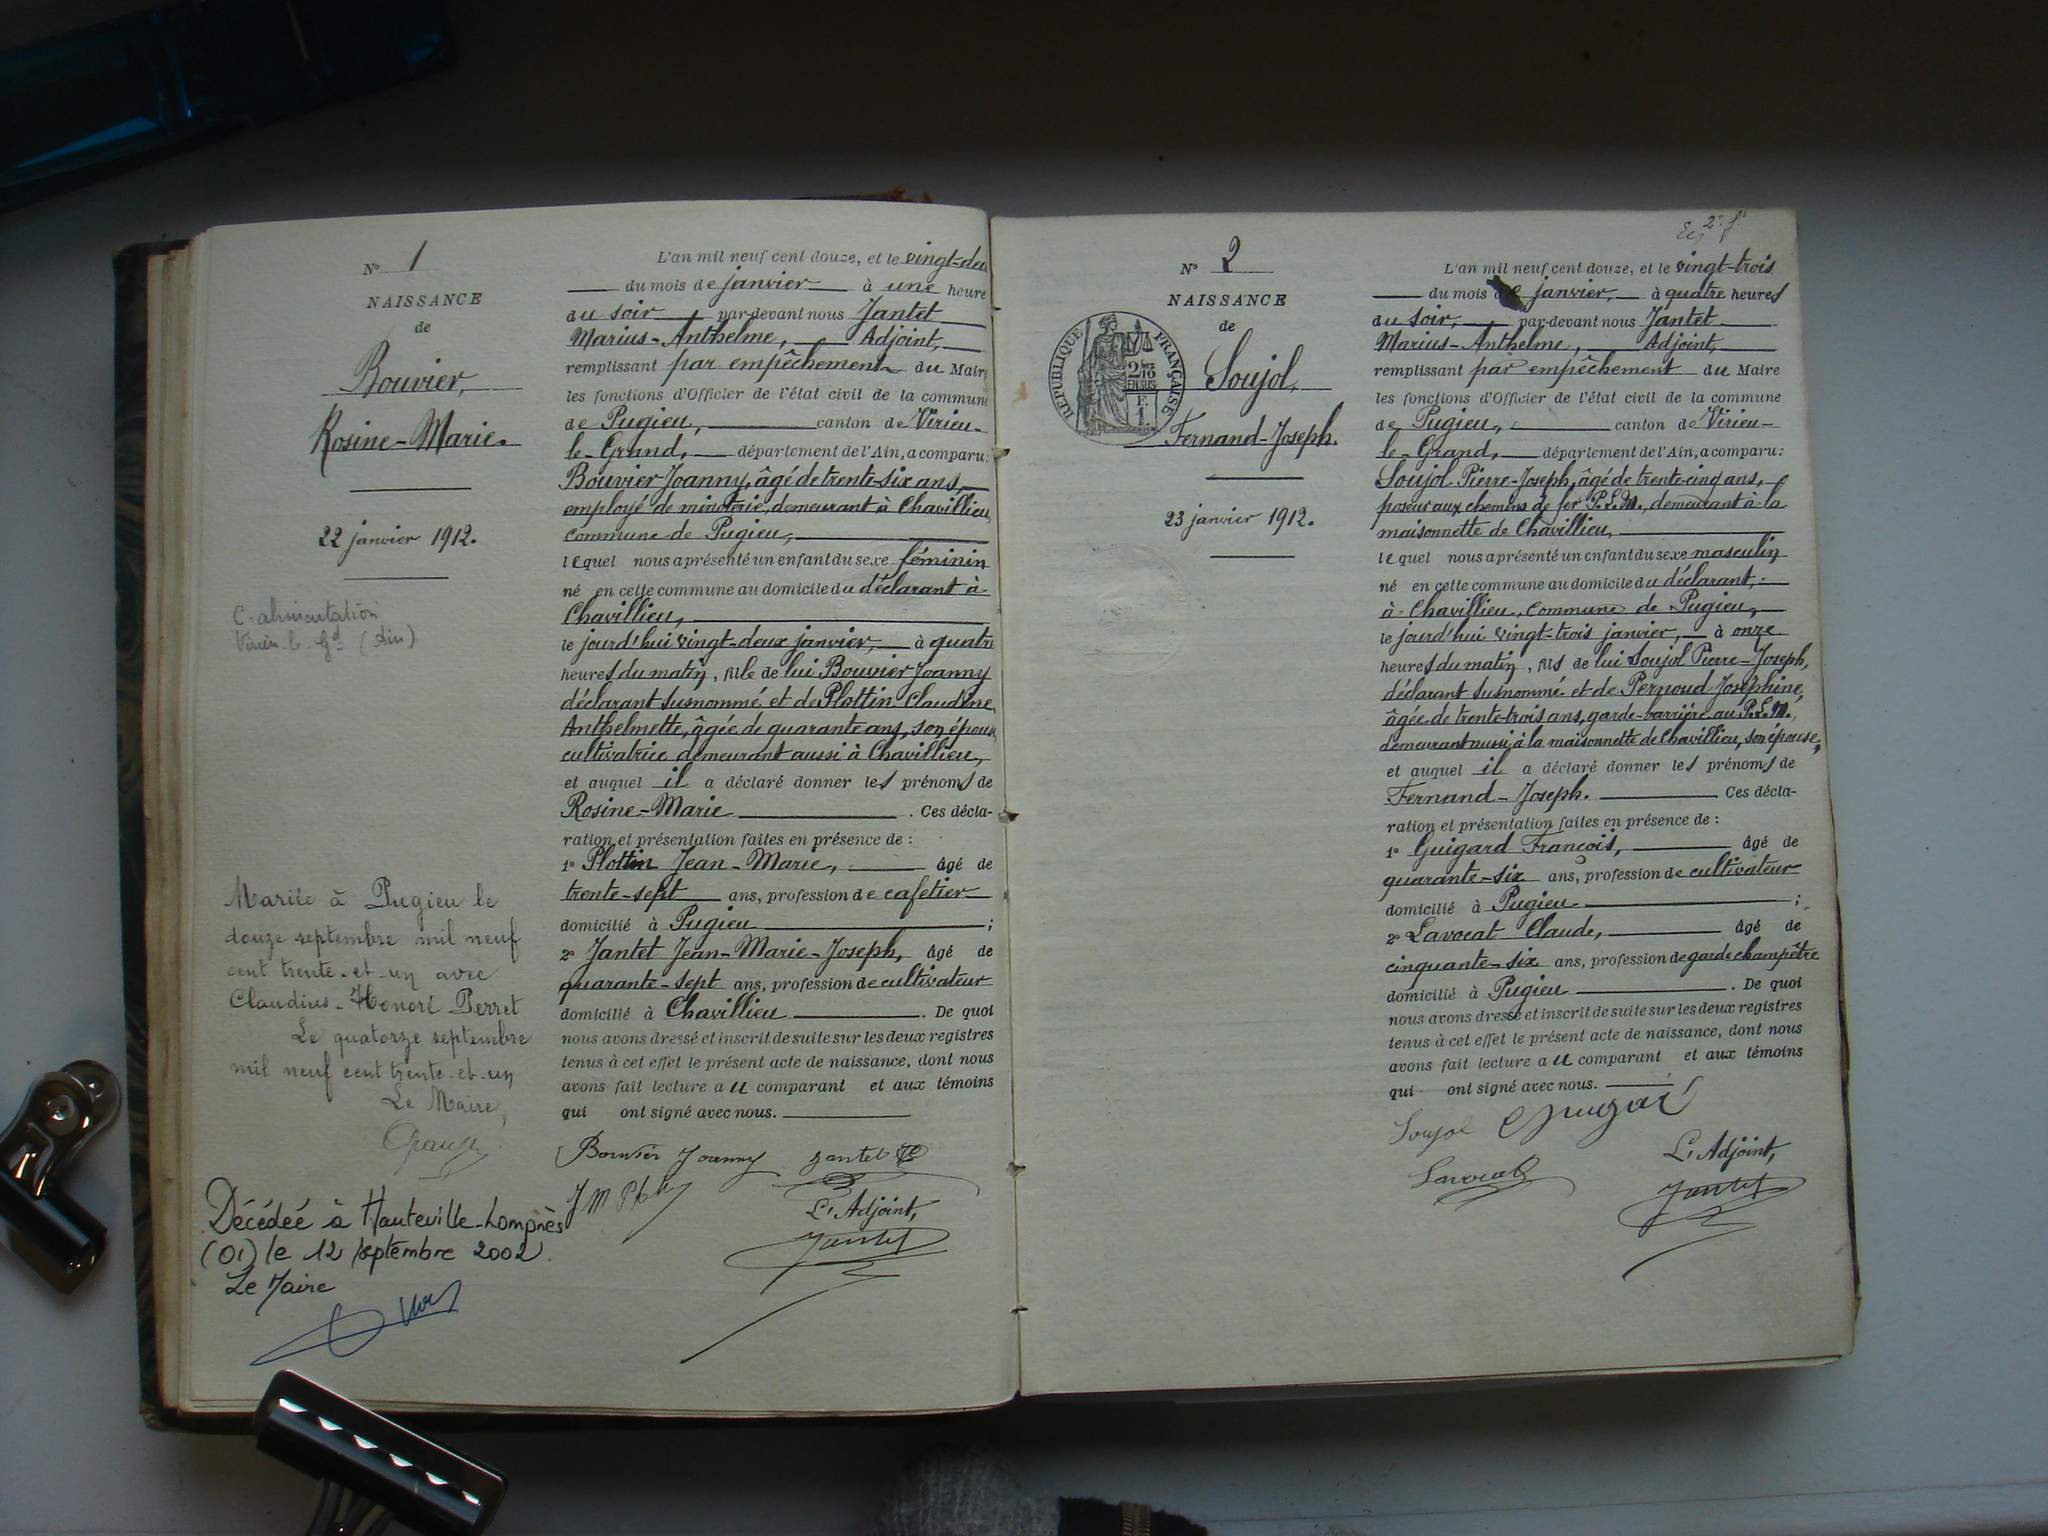 N° 1
NAISSANCE
de
Bouvier,
Rosine-Marie.
22 janvier 1912.
C. alimentation
Virieu-le-Gd (Ain)
Mariée à Pugieu le
douze septembre mil neuf
cent trente-et-un avec
Claudius-Honoré Perret
Le quatorze septembre
mil neuf cent trente-et-un
Le Maire,
Décédée à Hauteville-Lompnès
(01) le 12 septembre 2002.
Le Maire
L'an mil neuf cent douze, et le vingt-deu
du mois de janvier à une heure
du soir par-devant nous Jantet
Marius-Anthelme, Adjoint,
remplissant par empêchement du Maire
les fonctions d'Officier de l'état civil de la commune
de Pugieu, canton de Virieu-
le-Grand, département de l'Ain, a comparu:
Bouvier Joanny, âgé de trente-six ans,
employé de minoterie, demeurant à Chavillieu,
commune de Pugieu,
lequel nous a présenté un enfant du sexe féminin
né en cette commune au domicile du déclarant à
Chavillieu,
le jourd'hui vingt-deux janvier, à quatre
heures du matin, fille de lui Bouvier Joanny
déclarant susnommé et de Plottin Claudine
Anthelmette, âgée de quarante ans, son épouse,
cultivatrice demeurant aussi à Chavillieu,
et auquel il a déclaré donner les prénoms de
Rosine-Marie . Ces décla-
ration et présentation faites en présence de :
1° Plottin Jean-Marie, âgé de
trente-sept ans, profession de cafetier
domicilié à Pugieu ;
2° Jantet Jean-Marie-Joseph, âgé de
quarante-sept ans, profession de cultivateur
domicilié à Chavillieu . De quoi
nous avons dressé et inscrit de suite sur les deux registres
tenus à cet effet le présent acte de naissance, dont nous
avons fait lecture au comparant et aux témoins
qui ont signé avec nous.
Bouvier Joanny Jantet
L'Adjoint,
Jantet
2e f
N° 2
NAISSANCE
de
RÉPUBLIQUE FRANÇAISE
2/10
EN SUS
F.
1.
Soujol,
Fernand-Joseph.
23 janvier 1912.
L'an mil neuf cent douze, et le vingt-trois
du mois de janvier, à quatre heures
du soir, par-devant nous Jantet
Marius-Anthelme, Adjoint,
remplissant par empêchement du Maire
les fonctions d'Officier de l'état civil de la commune
de Pugieu, canton de Virieu-
le-Grand, département de l'Ain, a comparu:
Soujol Pierre-Joseph, âgé de trente-cinq ans,
poseur aux chemins de fer P.L.M., demeurant à la
maisonnette de Chavillieu,
lequel nous a présenté un enfant du sexe masculin
né en cette commune au domicile du déclarant,
à Chavillieu, commune de Pugieu,
le jourd'hui vingt-trois janvier, à onze
heures du matin, fils de lui Soujol Pierre-Joseph,
déclarant susnommé et de Pernoud Joséphine,
âgée de trente-trois ans, garde-barrière au P.L.M.,
demeurant aussi à la maisonnette de Chavillieu, son épouse,
et auquel il a déclaré donner les prénoms de
Fernand-Joseph. Ces décla-
ration et présentation faites en présence de :
1° Guigard François, âgé de
quarante-six ans, profession de cultivateur
domicilié à Pugieu ;
2° Lavocat Claude, âgé de
cinquante-six ans, profession de garde champêtre
domicilié à Pugieu . De quoi
nous avons dressé et inscrit de suite sur les deux registres
tenus à cet effet le présent acte de naissance, dont nous
avons fait lecture au comparant et aux témoins
qui ont signé avec nous.
Soujol
Lavocat
L'Adjoint,
Jantet